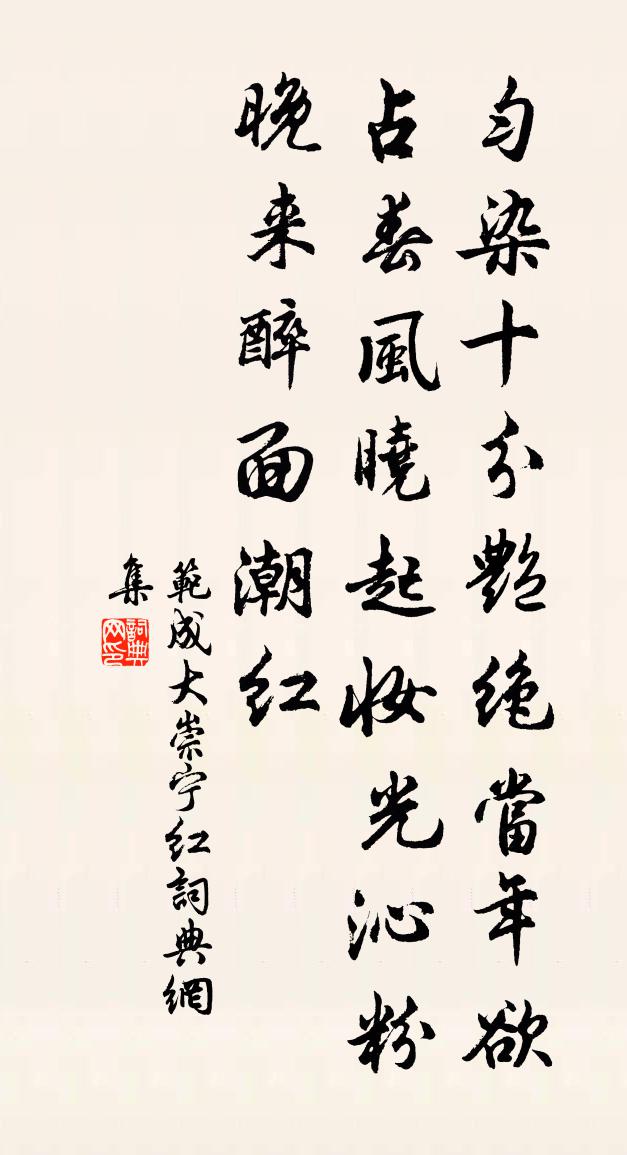 匀染十分艷絶當年欲
占春風曉起妝光沁粉
晚来醉面潮红
範成大崇宁红詞典網
集
詞典网印